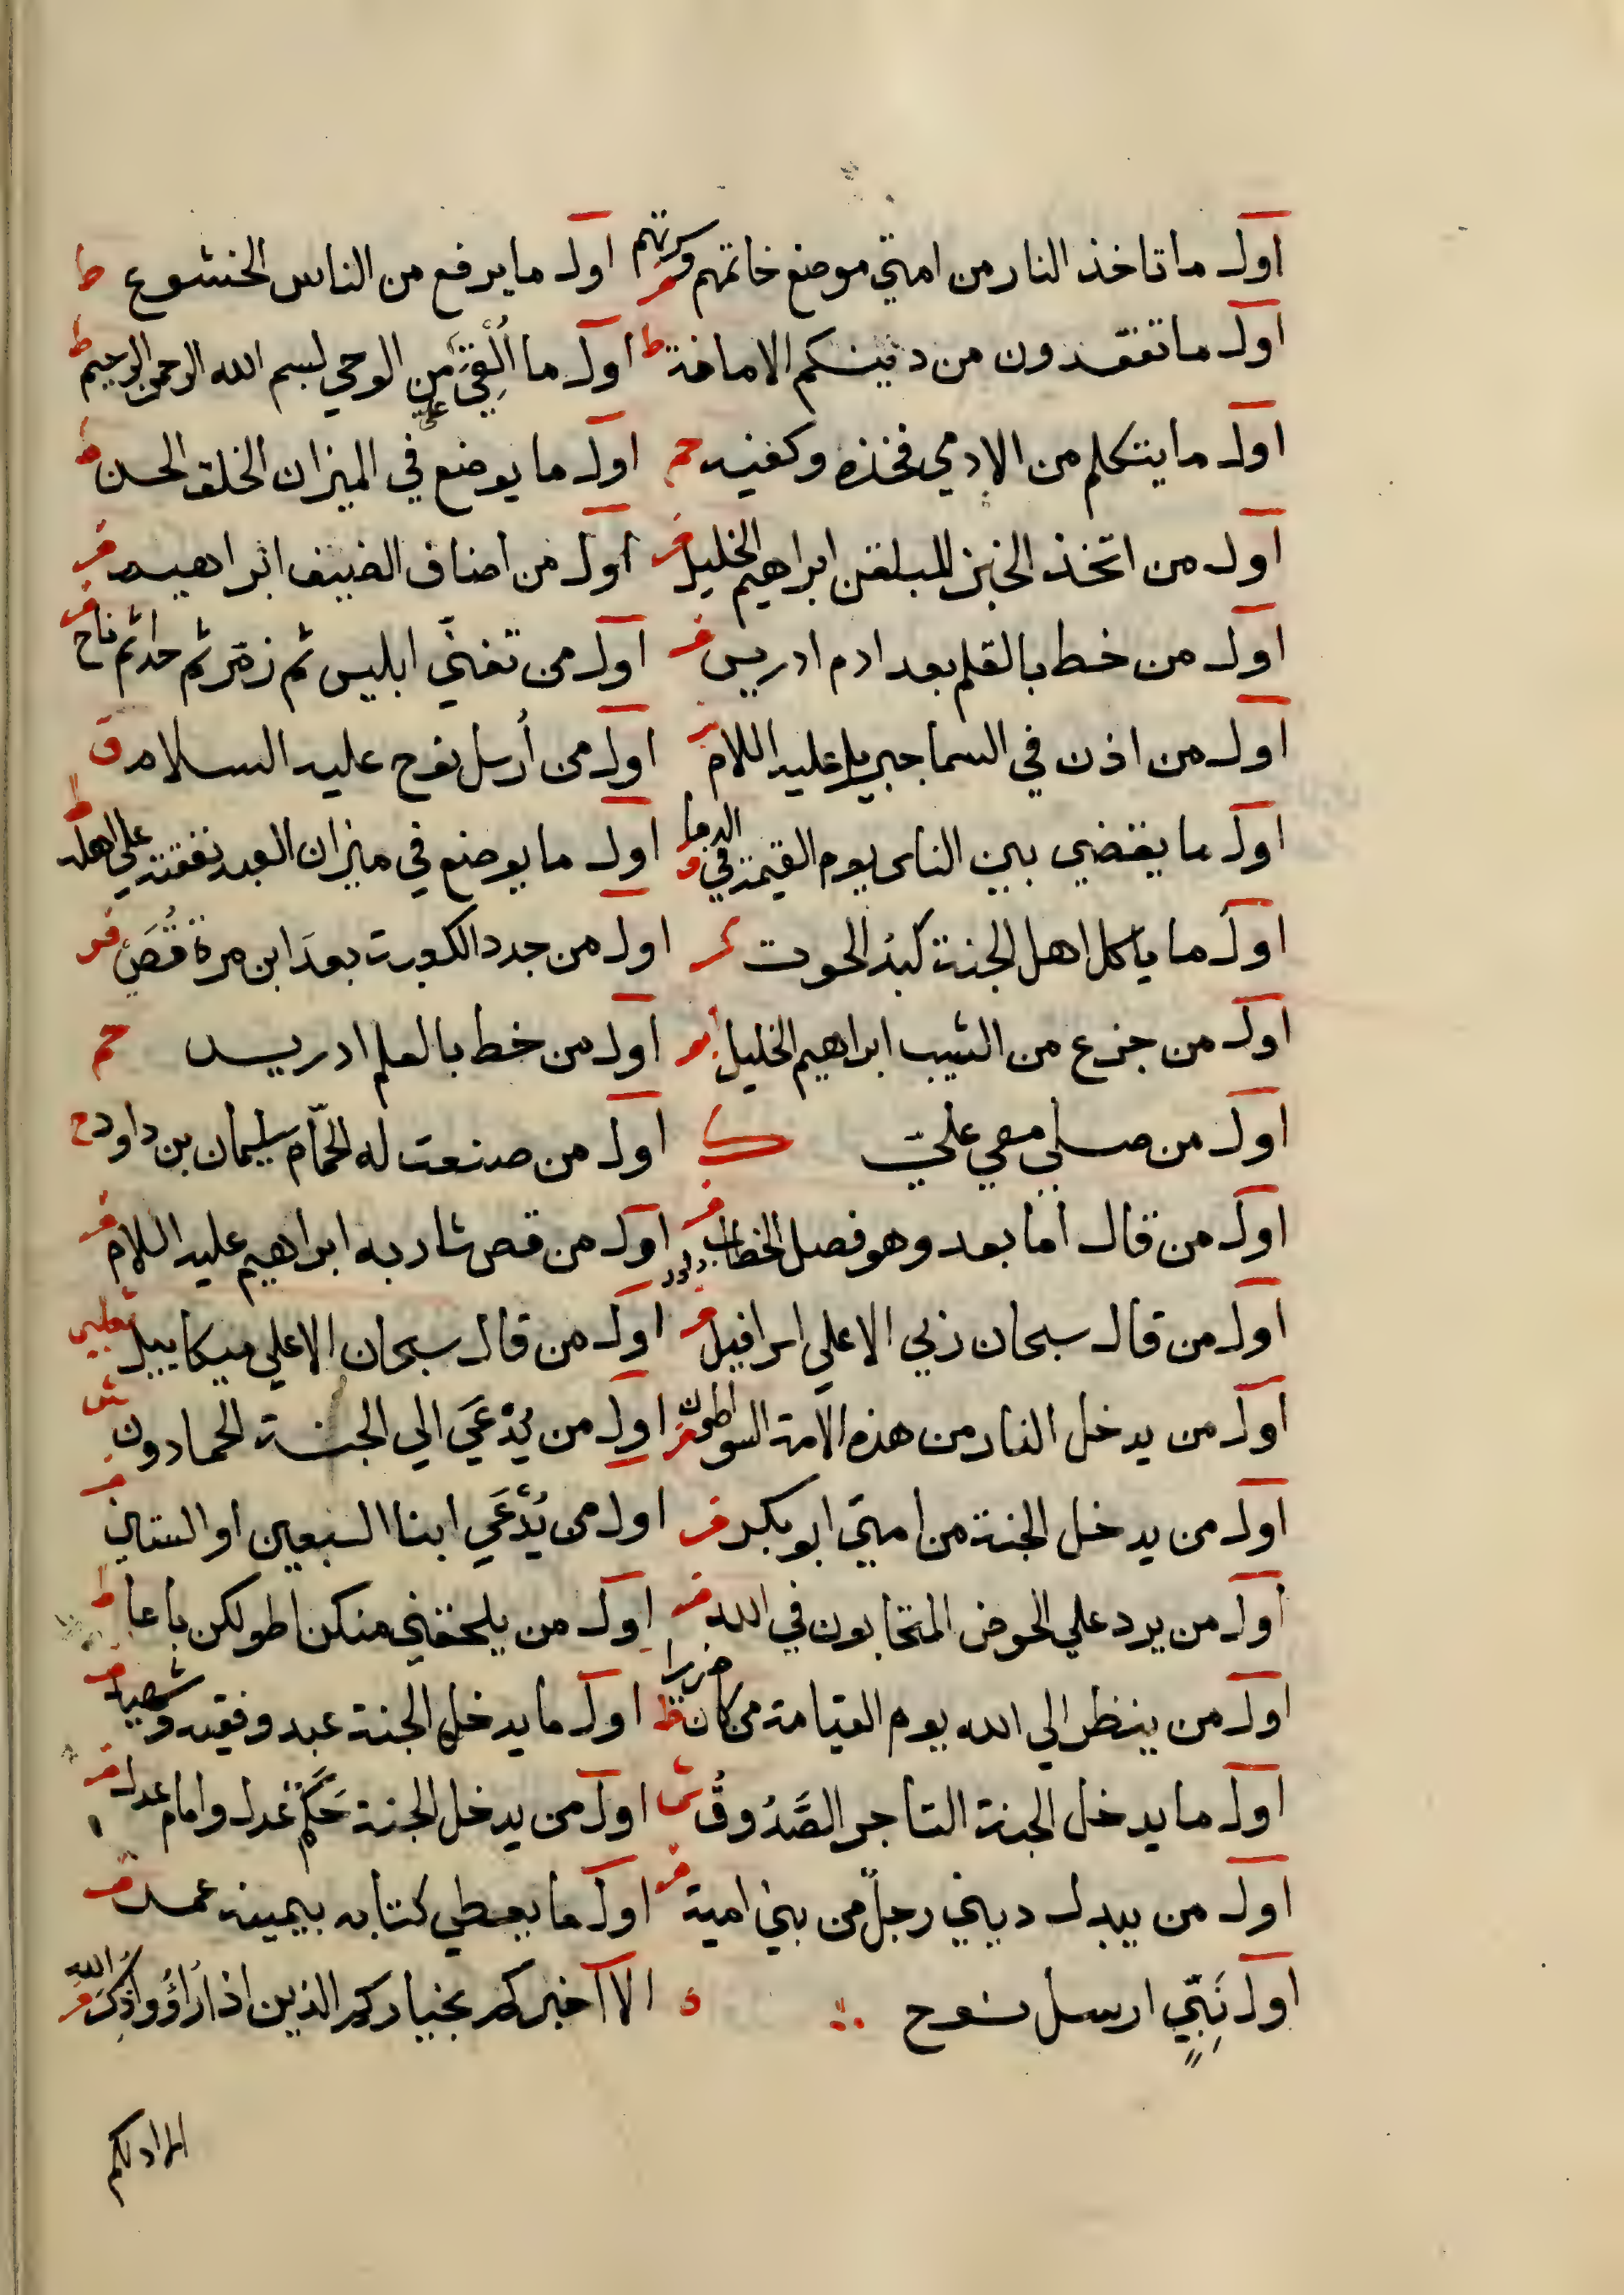 اول ما تاخذ النار من امتي موضع خاتمهم وسرتهم اول ما يرفع من الناس الخشوع ط
اول ما تفقدون من دينكم الامانة ط اول ما أُلْقِيَ عليَّ من الوحي بسم الله الرحمن الرحيم ط
اول ما يتكلم من الادمي فخذه وكفيه حم اول ما يوضع في الميزان الخلق الحسن ط
اول من اتخذ الخبز المبلقن ابراهيم الخليل فر اول من اضاف الضيف ابراهيم فر
اول من خط بالقلم بعد ادم ادريس فر اول من تغنّي ابليس ثم زمّر ثم حدا ثم ناح فر
اول من اذن في السما جبريل عليه السلام اول من أُرسل نوح عليه السلام ق
اول ما يقضي بين الناس يوم القيمة في الدما اول ما يوضع في ميزان العبد نفقته علي اهله ط
اول ما ياكل اهل الجنة كبدُ الحوت اول من جدد الكوبة بعدَ ابن مرة قُصَيّ فر
اول من جزع من الشيب ابراهيم الخليل اول من خط بالعلم ادريس حم
اول من صلي معي عليّ ك اول من صنعت له الحمّام سليمان بن داود ح
اول من قال اما بعد وهو فصل الخطاب داود فر اول من قص شاربه ابراهيم عليه السلام فر
اول من قال سبحان ربي الاعلي اسرافيل اول من قال سبحان الاعلي ميكاييل ثعلبي
اول من يدخل النار من هذه الامة السواطون فر اول من يُدْعَي الي الجنة الحمادون ش
اول من يدخل الجنة من امتي ابو بكر فر اول من يُدْعَي ابنا السبعين او الستين فر
اول من يرد علي الحوض المتحابون في الله فر اول من يلحقني منكن اطولكن باعا ط
اول من ينظر الي الله يوم القيامة من كان ضريرا ط اول ما يدخل الجنة عبد وفقيه وشهيد فر
اول ما يدخل الجنة التاجر الصَّدُوقُ ش اول من يدخل الجنة حَكَمٌ عدل وامام عدل فر
اول من يبدل ديني رجل من بني امية فر اول ما يعطي كتابه بيمينه عمر فر
اول نَبِيّ ارسل نوح الا اخبركم بخياركم الذين اذا رَاؤُ واذُكِرَ اللهُ فر